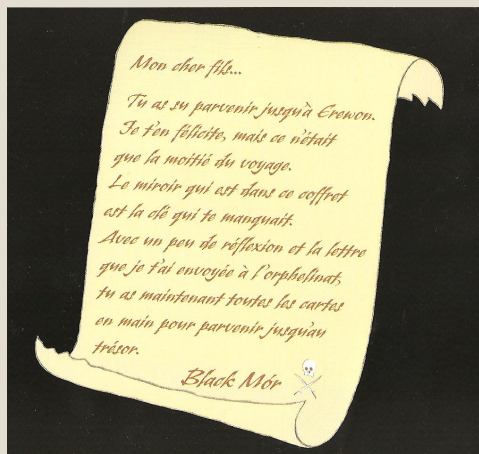 Mon cher fils...
Tu as su parvenir jusqu'à Erewon.
Je t'en félicite, mais ce n'était
que la moitié du voyage.
Le miroir qui est dans ce coffret
est la clé qui te manquait.
Avec un peu de réflexion et la lettre
que je t'ai envoyée à l'orphelinat,
tu as maintenant toutes les cartes
en main pour parvenir jusqu'au
trésor.
Black Mór